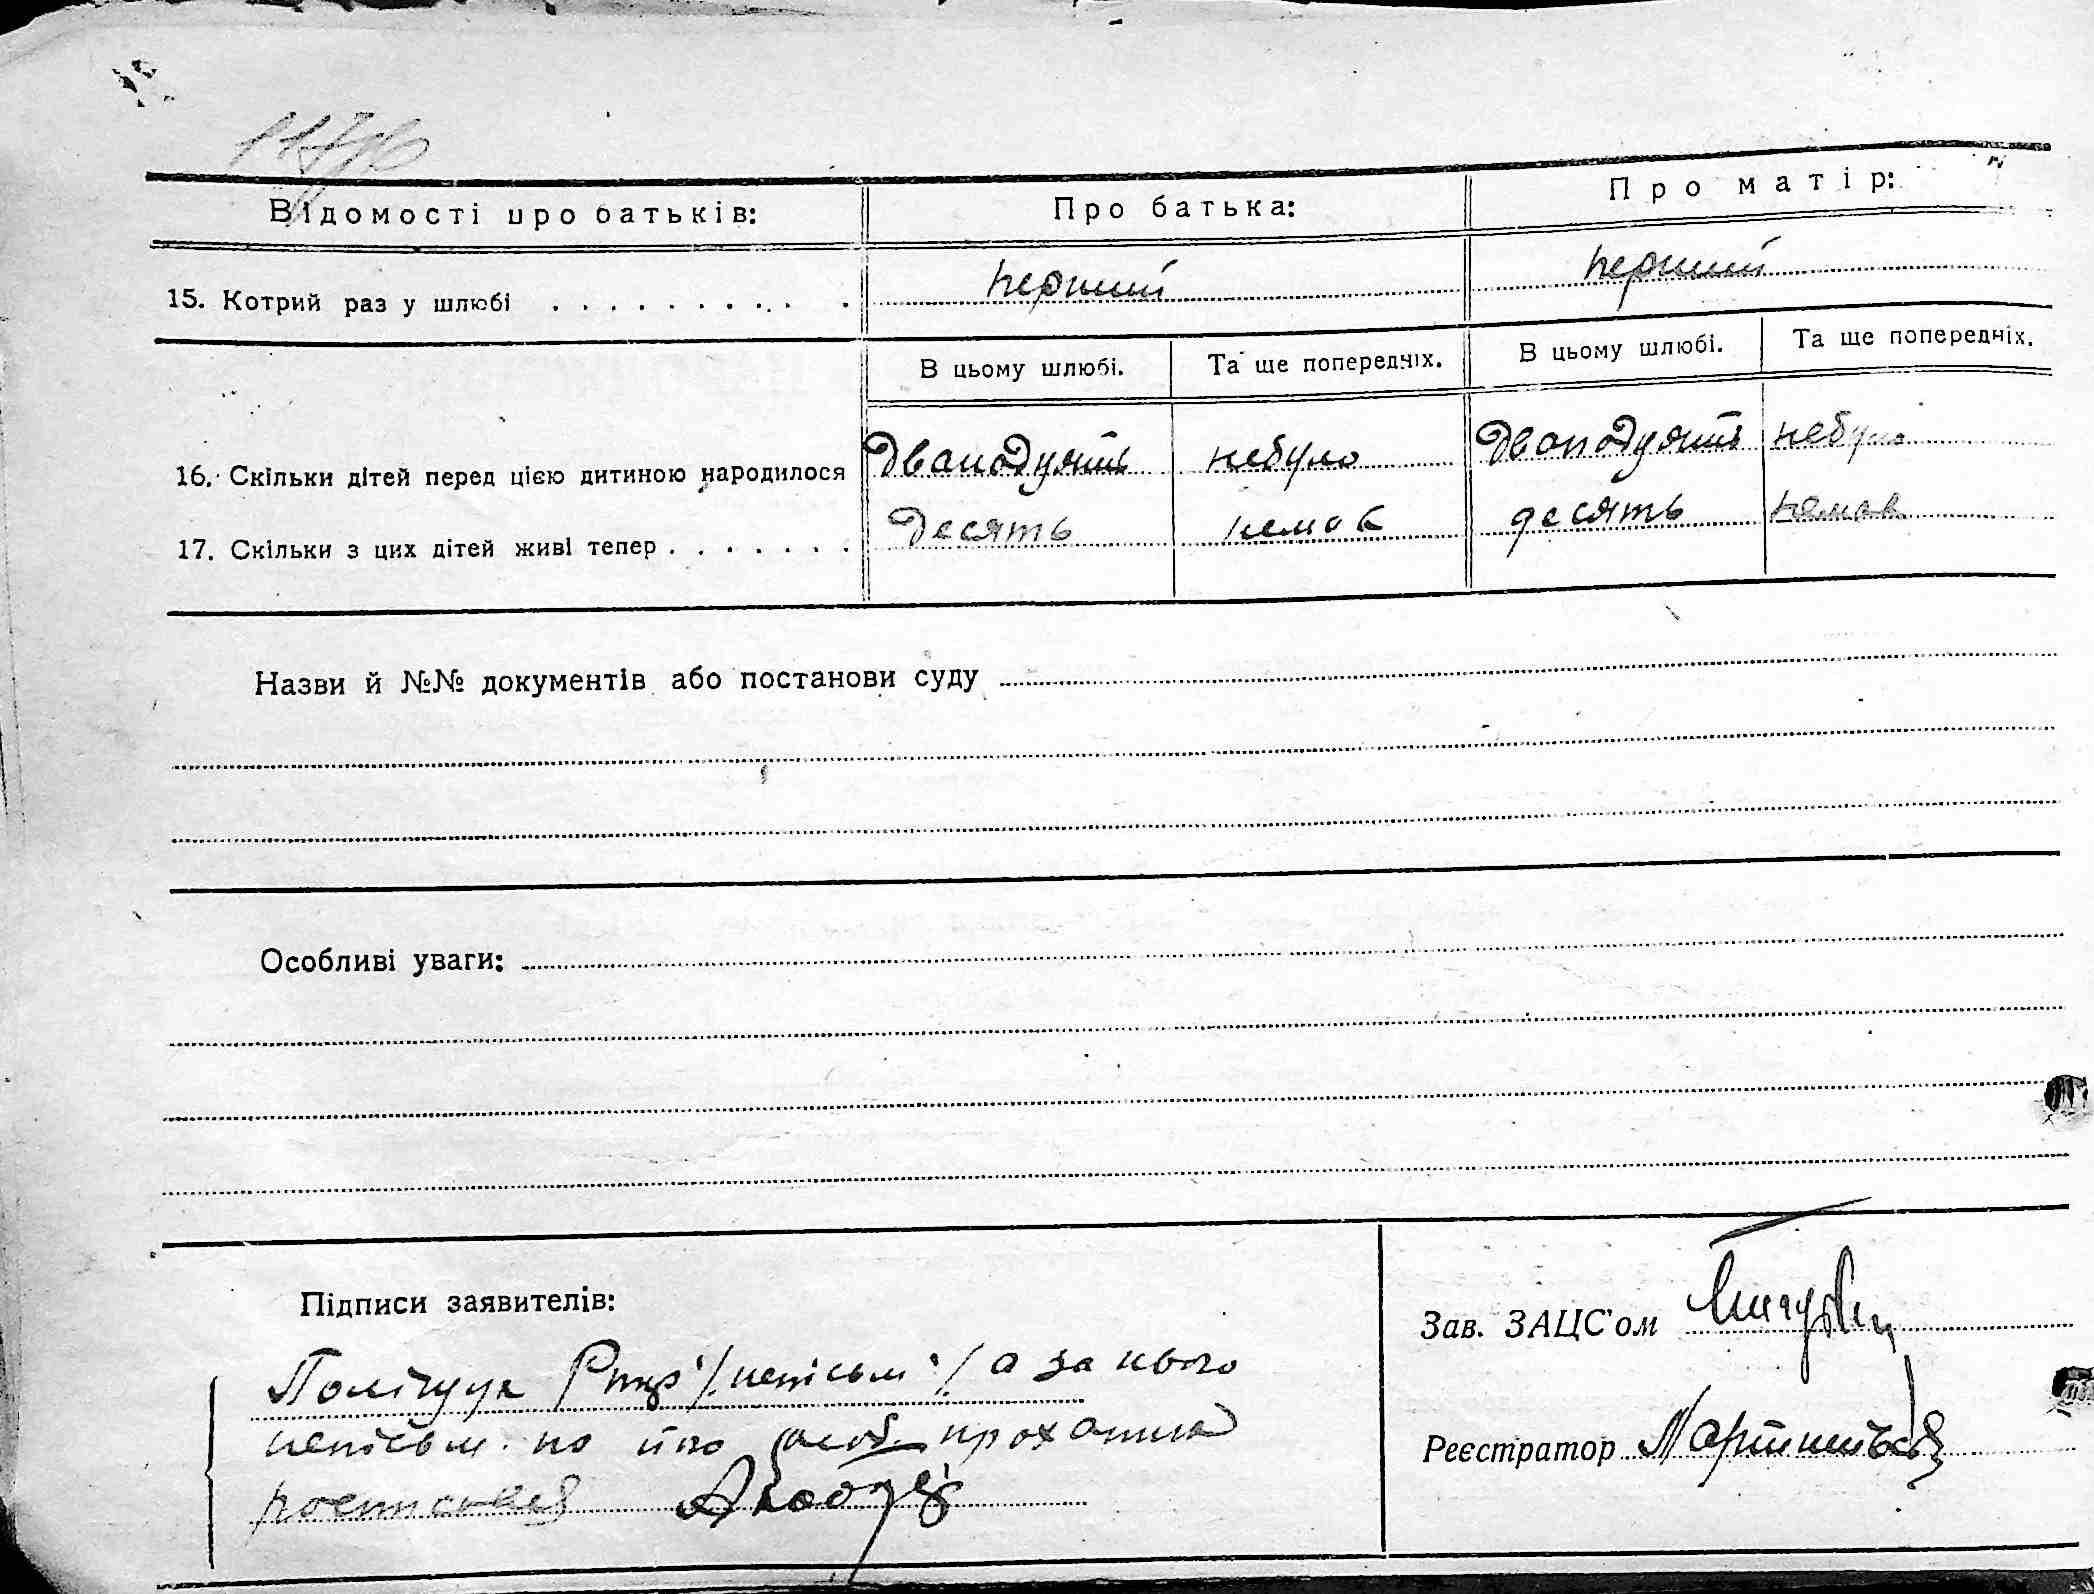 Відомості про батьків: Про батька: Про матір:
15. Котрий раз у шлюбі . . . . . . . . . . . перший перший
В цьому шлюбі. Та ще попередніх. В цьому шлюбі. Та ще попередніх.
16. Скільки дітей перед цією дитиною народилося дванадцять небуло дванадцять небуло
17. Скільки з цих дітей живі тепер . . . . . . . десять немає десять немає
Назви й №№ документів або постанови суду
Особливі уваги:
Підписи заявителів:
Зав. ЗАЦС'ом
Поліщук /неписьм/ а за нього
неписьм. по його прохання
Реєстратор